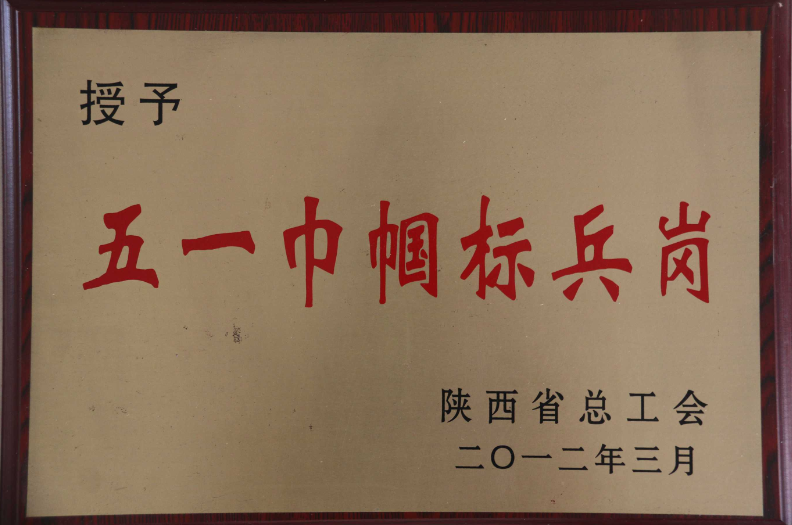 授予
五一巾帼标兵岗
陕西省总工会
二〇一二年三月